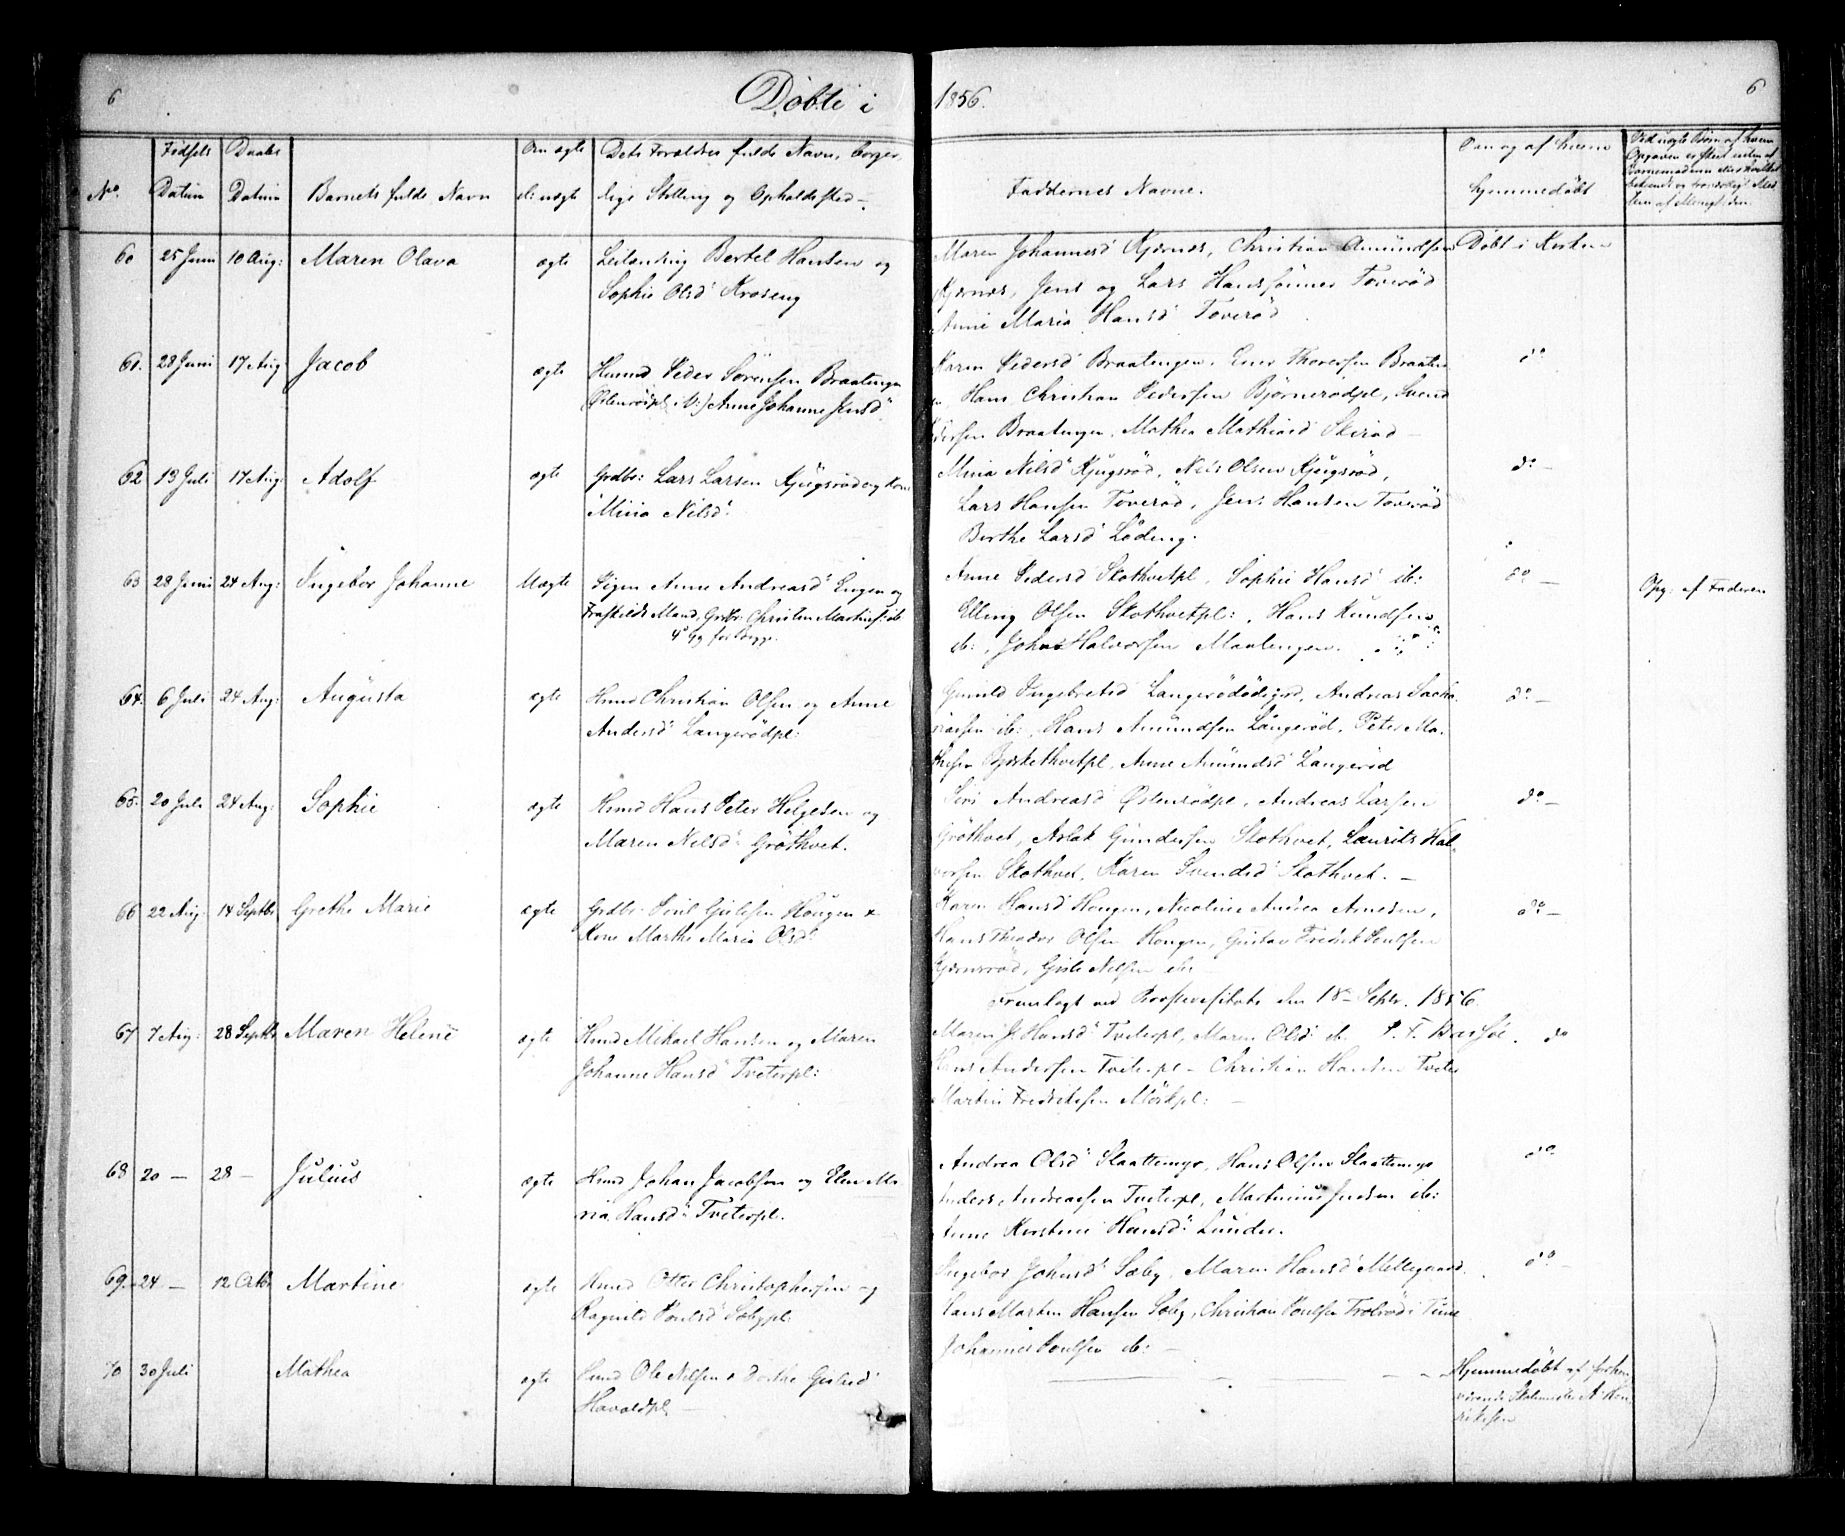 6 Døbte i 1856. 6
No. Fødsels Datum Daabs Datum Barnets fulde Navn Om ægte el: uægte Dets Forældres fulde Navn, borgerlige Stilling og Opholdssted. Faddernes Navne. hjemmedøbt
60 25 Juni 10 Aug: Maren Olava ægte Leilænding Bertel Hansen og
Sophie Olsd. Kroseng
Maren Johannesd Kjærnæs, Christian Amundsen
Kjærnæs, Jens og Lars Hanssønner Toverød
Anne Maria Hansd Toverød
Døbt i Kirken
61. 28 Juni 17 Aug Jacob ægte Huusmd Peder Sørensen Braatengen
(Østenrødpl. V:) Anne Johanne Jensd.
Karen Pedersd Braatengen, Thoresen Braaten
Hans Christian Pedersen Bjørnerødpl, Svend
Pedersen Braatengen, Mathea Mathiasd
do
62 13 Juli 17 Aug: Adolf ægte Grdbr: Lars Larsen og Kone
Mina Nilsd.
Mina Nilsd Nils Olsen
Lars Hansen Toverød, Jens Hansen Toverød
Berthe Larsd Løding.
do —
63 28 Juni 24 Aug: Ingebor Johanne Uægte Pigen Anne Andreasd Engen og
Fraskildt Mand, Grbr: Christen Martins: ib
4de Gg for begge.
Anne Pedersd Skothvetpl, Sophie Hansd ib:
Elling Olsen Skothvetpl:, Hans Knudsen
ib:, Johan Halvorsen
do —
Opg: af Faderen
64. 6 Juli 24 Aug: Augusta ægte Hmd Christian Olsen og Anne
Andersd Langerødpl:
Gunild Ingebretsd Andreas Sacka
riasen ib:, Hans Amundsen Langerød, Peter Ma
Anne Amundsd Langerød
do —
65. 20 Juli 24 Aug: Sophie ægte Hmd Hans Peter Helgesen og
Maren Nilsd. Grøthvet.
Andreasd Østenrødpl, Andreas Larsen
Grøthvet, Aslak Gundersen Skothvet, Laurits Hal-
vorsen Skothvet, Karen Svendsd Skothvet. —
do —
66 22 Aug: 14 Septbr Grethe Marie ægte Grdbr: Poul Gulosen Hougen &
Kone Marthe Maria Olsd.
Karen Hansd Hougen, Nicoline Andrea Arnesen,
Hans Theodor Olsen Hougen, Gustav Fredrik Poulsen
Nilsen ib:
do —
Fremlagt ved Provstevisitats den 18de Septr. 1856.
67 7 Aug: 28 Septbr Maren Helene ægte Hmd Mikael Hansen og Maren
Johanne Hansd Tveterpl:
Maren J. Hansd Tveterpl, Maren Olsd ib.
Hans Andersen Tveterpl – Christian Hansen Tveter
Martin Fredriksen Mørkpl: —
do
68 20 — 28 — Julius ægte Hmd Johan Jacobsen og Elen Ma
ria Hansd. Tveterpl.
Andrea Olsd Slaattemyr, Hans Olsen Slaattemyr
Anders Andreasen Tveterpl, Martinius Jensen ib:
Anne Kirstine Hansd. Lunder.
do
69. 24 — 12 Octbr Martine ægte Hmd Otter Christophersen og
Ragnild Poulsd Sæbypl.
Ingebor Johnsd. Sæby, Maren Hansd Mellegaard
Hans Martin Hansen Sæby, Christian Poulsen i Tune
Johannes Poulsen ib: —
do —
70 30 Juli Mathea ægte Hmd Ole Nilsen & Dorthe
Havaldpl. —
Hjemmedøbt af forhen
værende Skolemester A. Hen
riksen